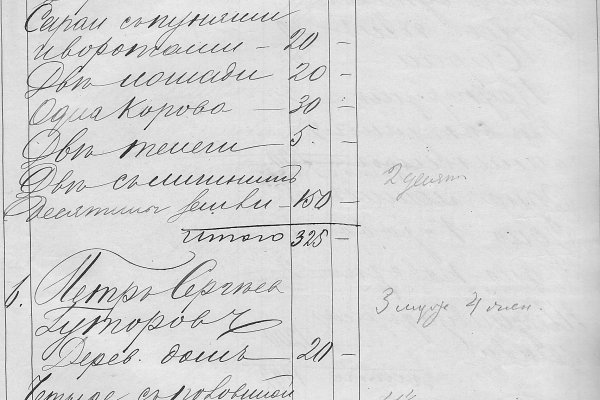 Сарай съ пунями
и воротами — 20 —
Двѣ лошади 20 —
Одна Корова — 30 —
Двѣ телеги 5. —
Двѣ съ
Десятины земли — 150 — 2 десят
Итого 325 —
6. Петръ Сергѣев
Гуторовъ 3 муж 4 жен.
Дерев. домъ — 20 —
Четыре съ половиной